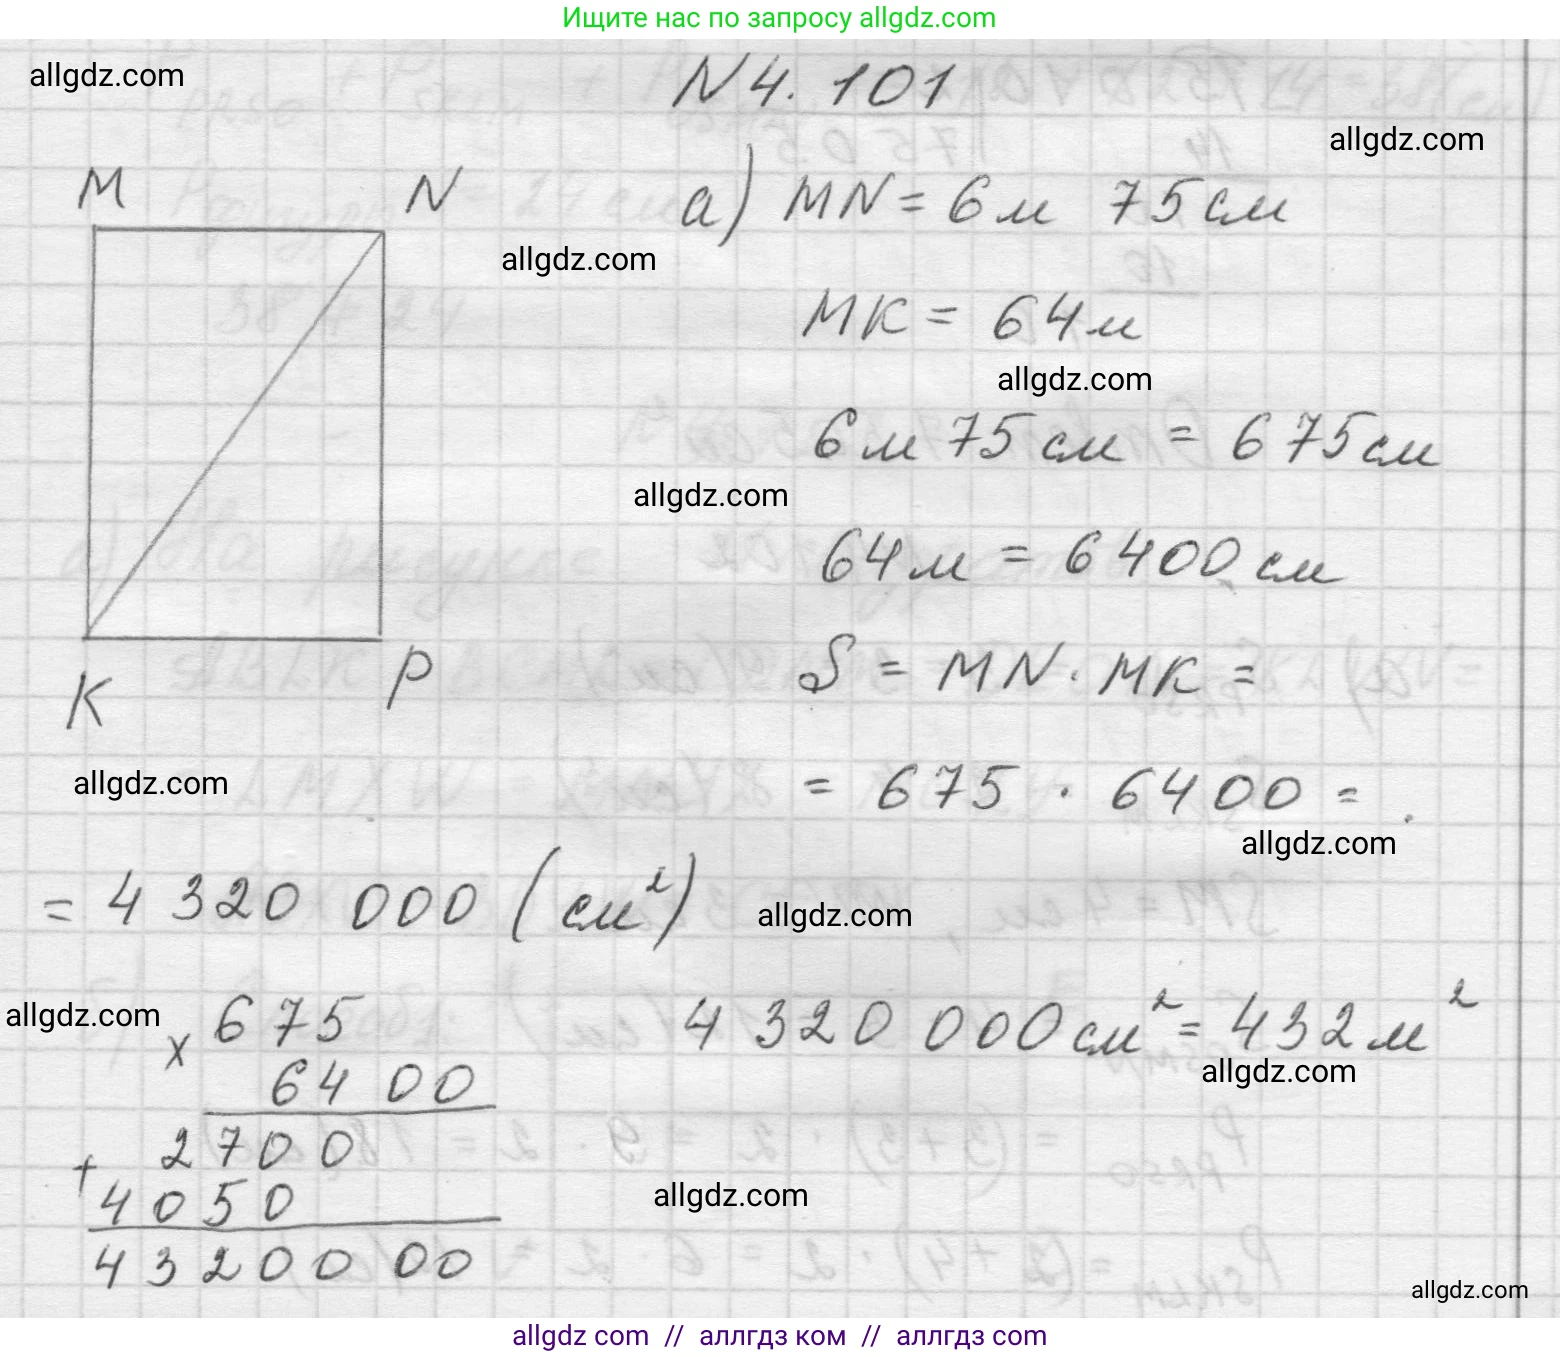 Ищите нас по запросу allgdz.com
allgdz.com
N 4. 101
allgdz.com
M N
а) MN = 6 м 75 см
allgdz.com
MK = 64 м
allgdz.com
6 м 75 см = 675 см
allgdz.com
64 м = 6400 см
K P
S = MN · MK =
allgdz.com
= 675 · 6400 =
allgdz.com
= 4 320 000 (см²)
allgdz.com
allgdz.com
4 320 000 см² = 432 м²
allgdz.com
× 675
6400
2700
+ 4050
4320000
allgdz.com
allgdz.com
allgdz com // аллгдз ком // аллгдз com